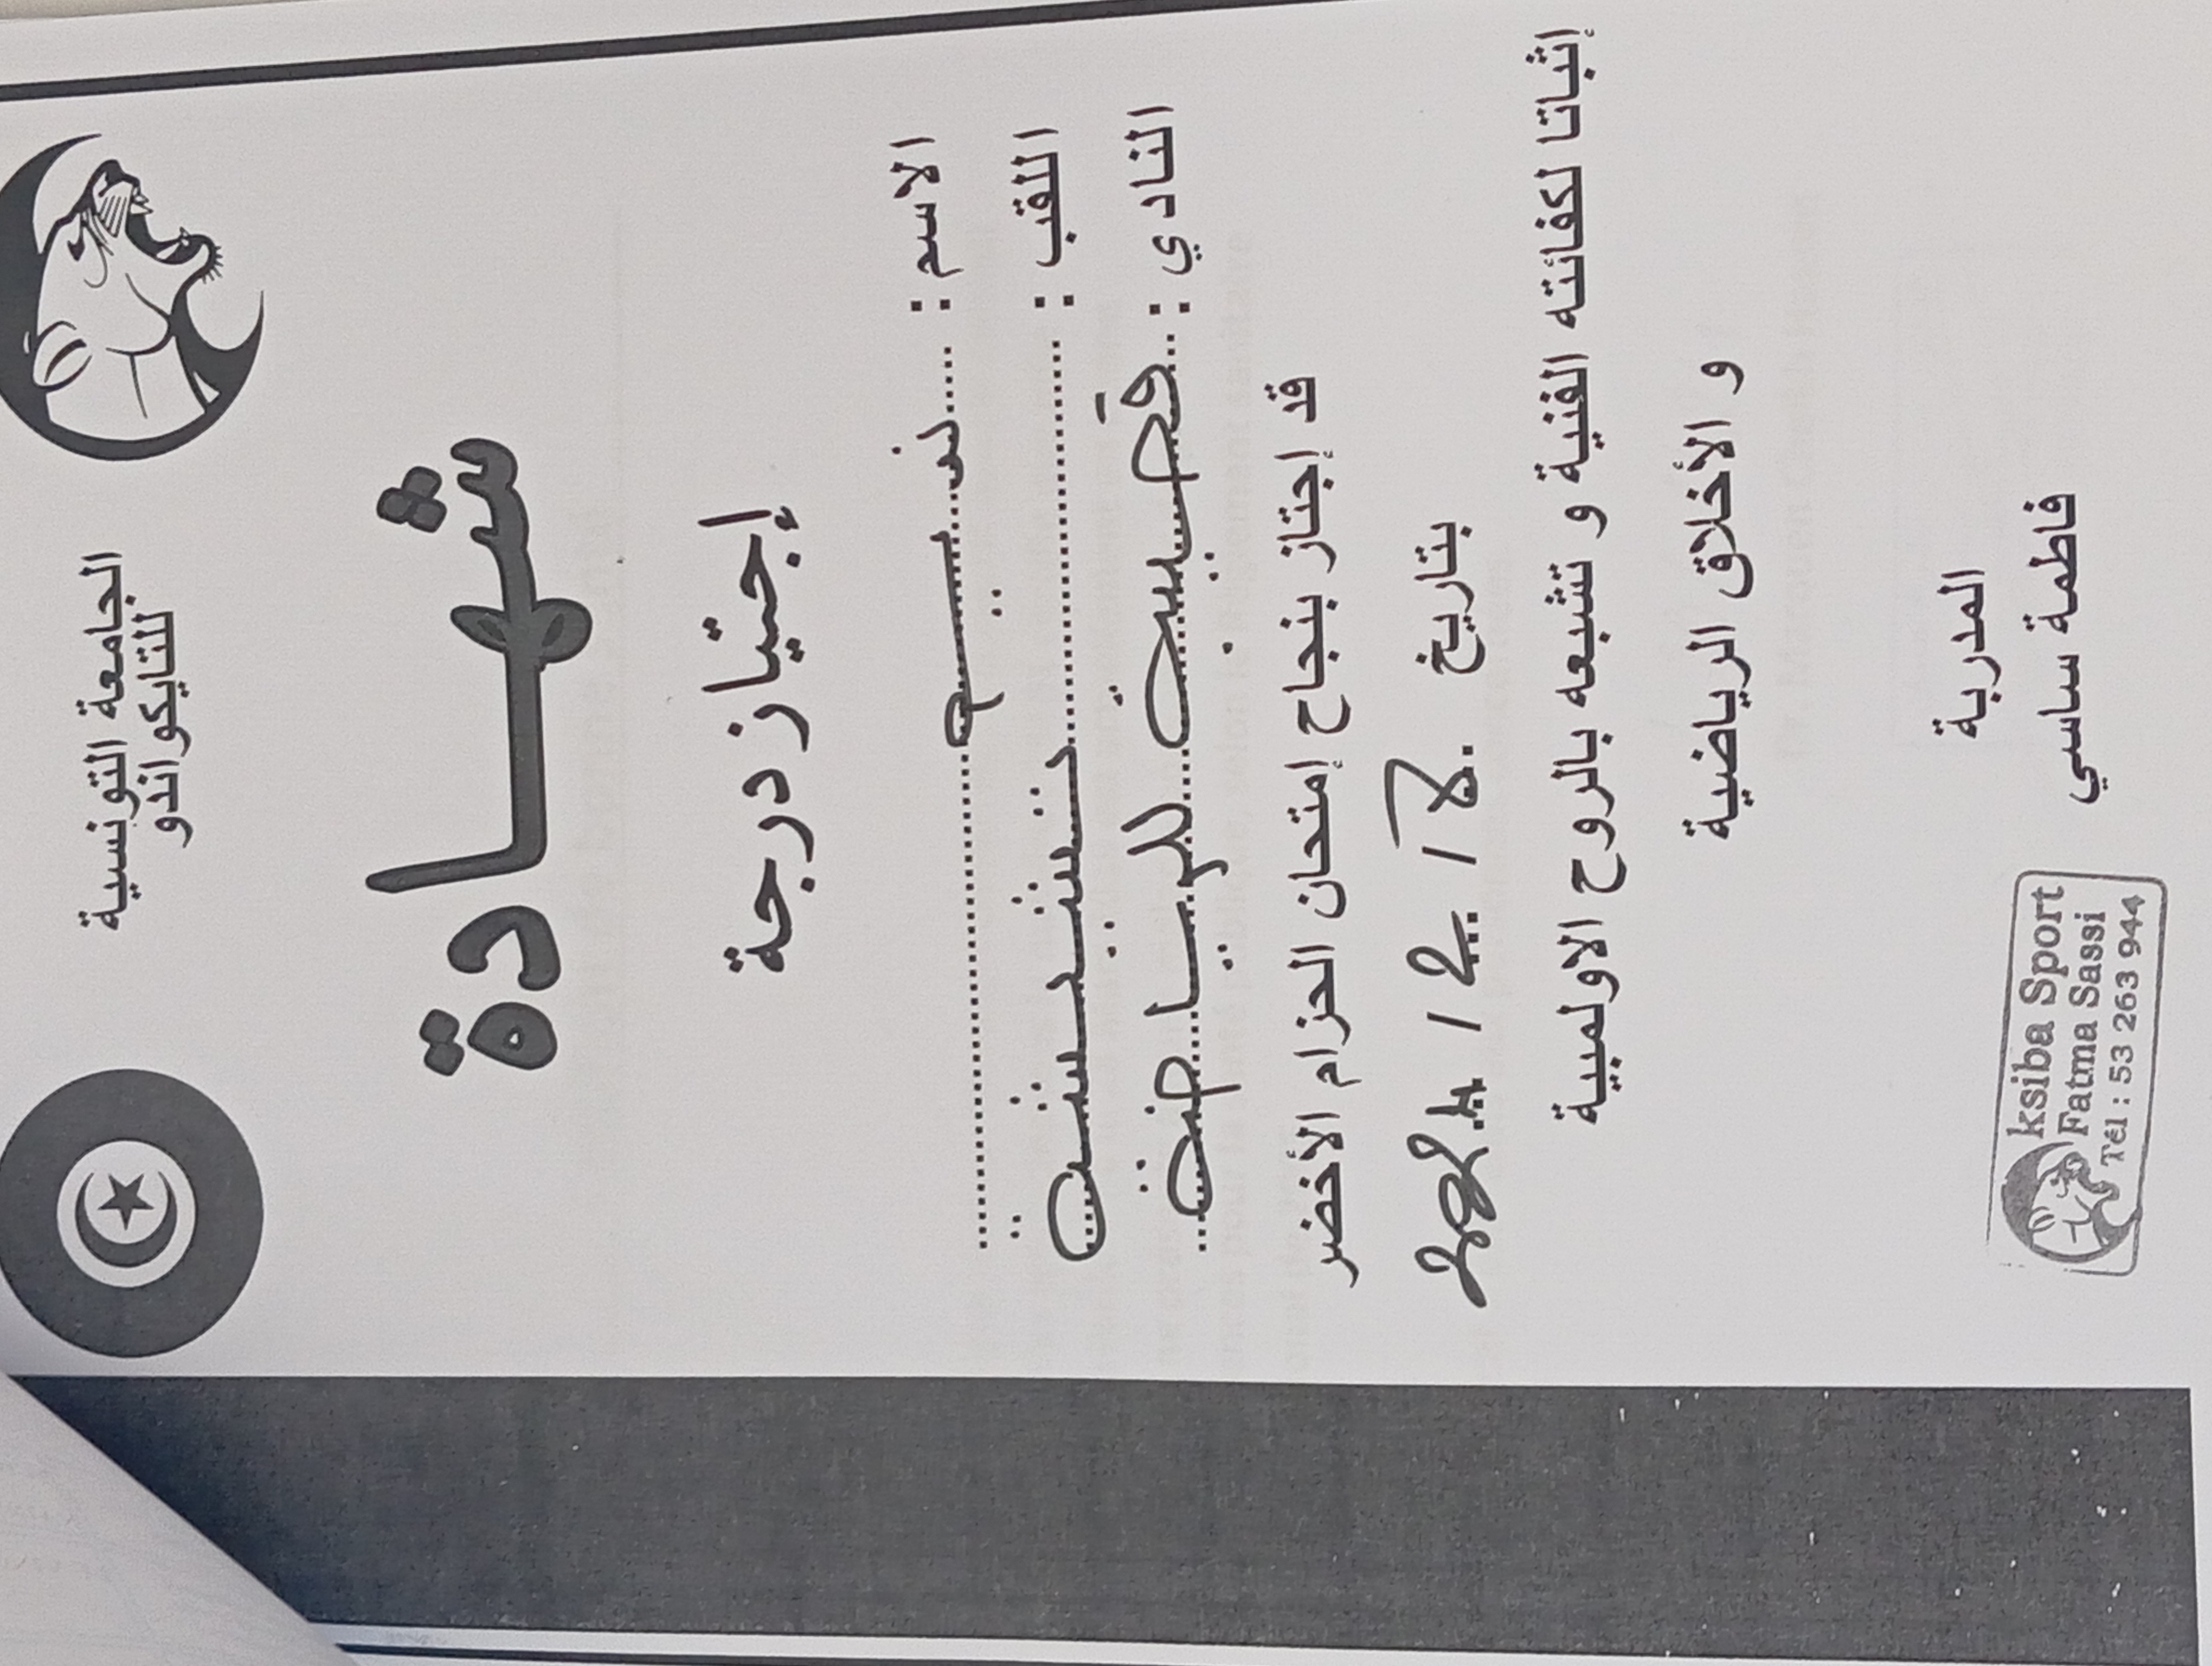 الجامعة التونسية
للتايكواندو
شهــادة
إجتياز درجة
الاسم : نسيم
اللقب :
النادي : قصيبة للرياضة
قد إجتاز بنجاح إمتحان الحزام الأخضر
بتاريخ
إثباتا لكفائته الفنية و تشبعه بالروح الاولمبية
و الأخلاق الرياضية
المدربة
فاطمة ساسي
ksiba Sport
Fatma Sassi
Tél : 53 263 944